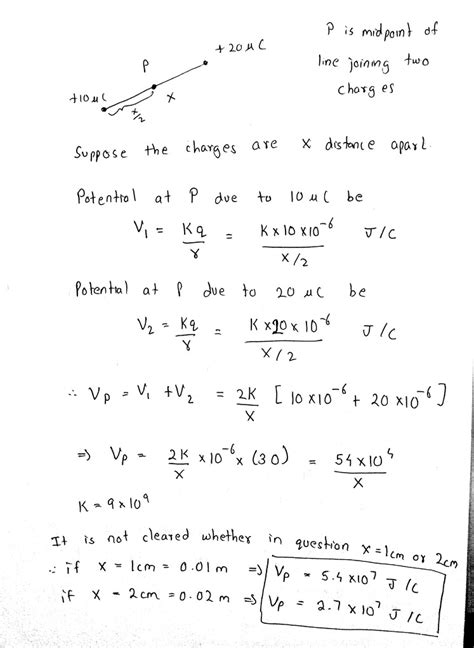 P is midpoint of
line joining two
charges
+20 μC
P
+10 μC
x
x/2
Suppose the charges are x distance apart.
Potential at P due to 10 μC be
V₁ = Kq/r = K×10×10⁻⁶/x/2 J/C
Potential at P due to 20 μC be
V₂ = Kq/r = K×20×10⁻⁶/x/2 J/C
∴ Vp = V₁ + V₂ = 2K/x [10×10⁻⁶ + 20×10⁻⁶]
⇒ Vp = 2K/x × 10⁻⁶ × (30) = 54×10⁴/x
K = 9×10⁹
It is not cleared whether in question x=1cm or 2cm
∴ if x = 1cm = 0.01 m ⇒ Vp = 5.4×10⁷ J/C
if x = 2cm = 0.02 m ⇒ Vp = 2.7×10⁷ J/C